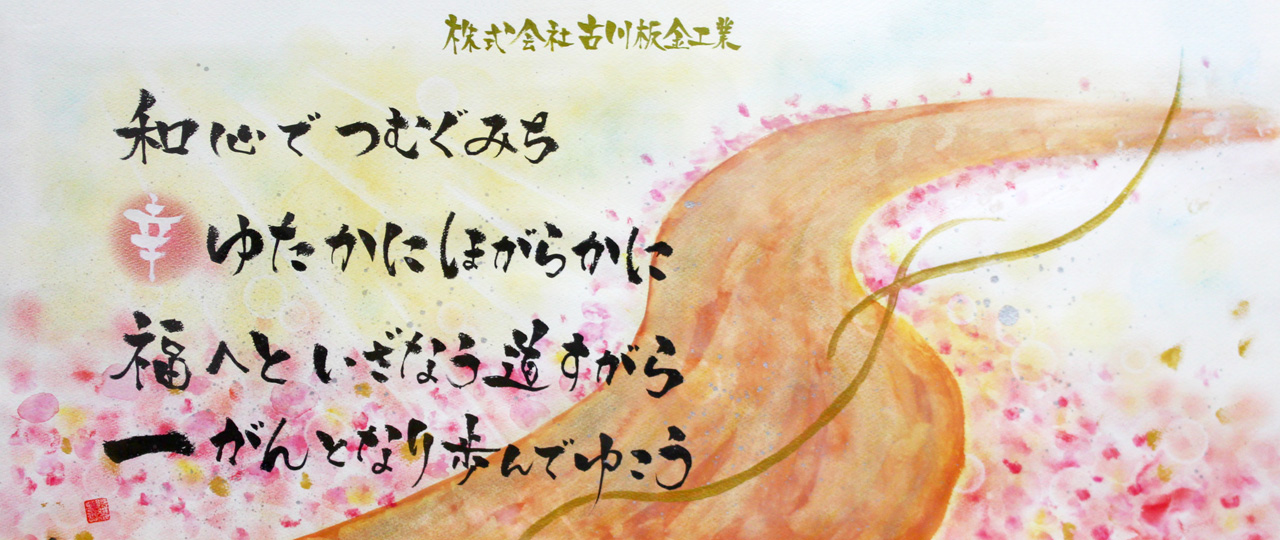 株式会社古川板金工業
和心で つむぐみち
幸ゆたかに ほがらかに
福へと いざなう道すがら
一がんとなり歩んでゆこう